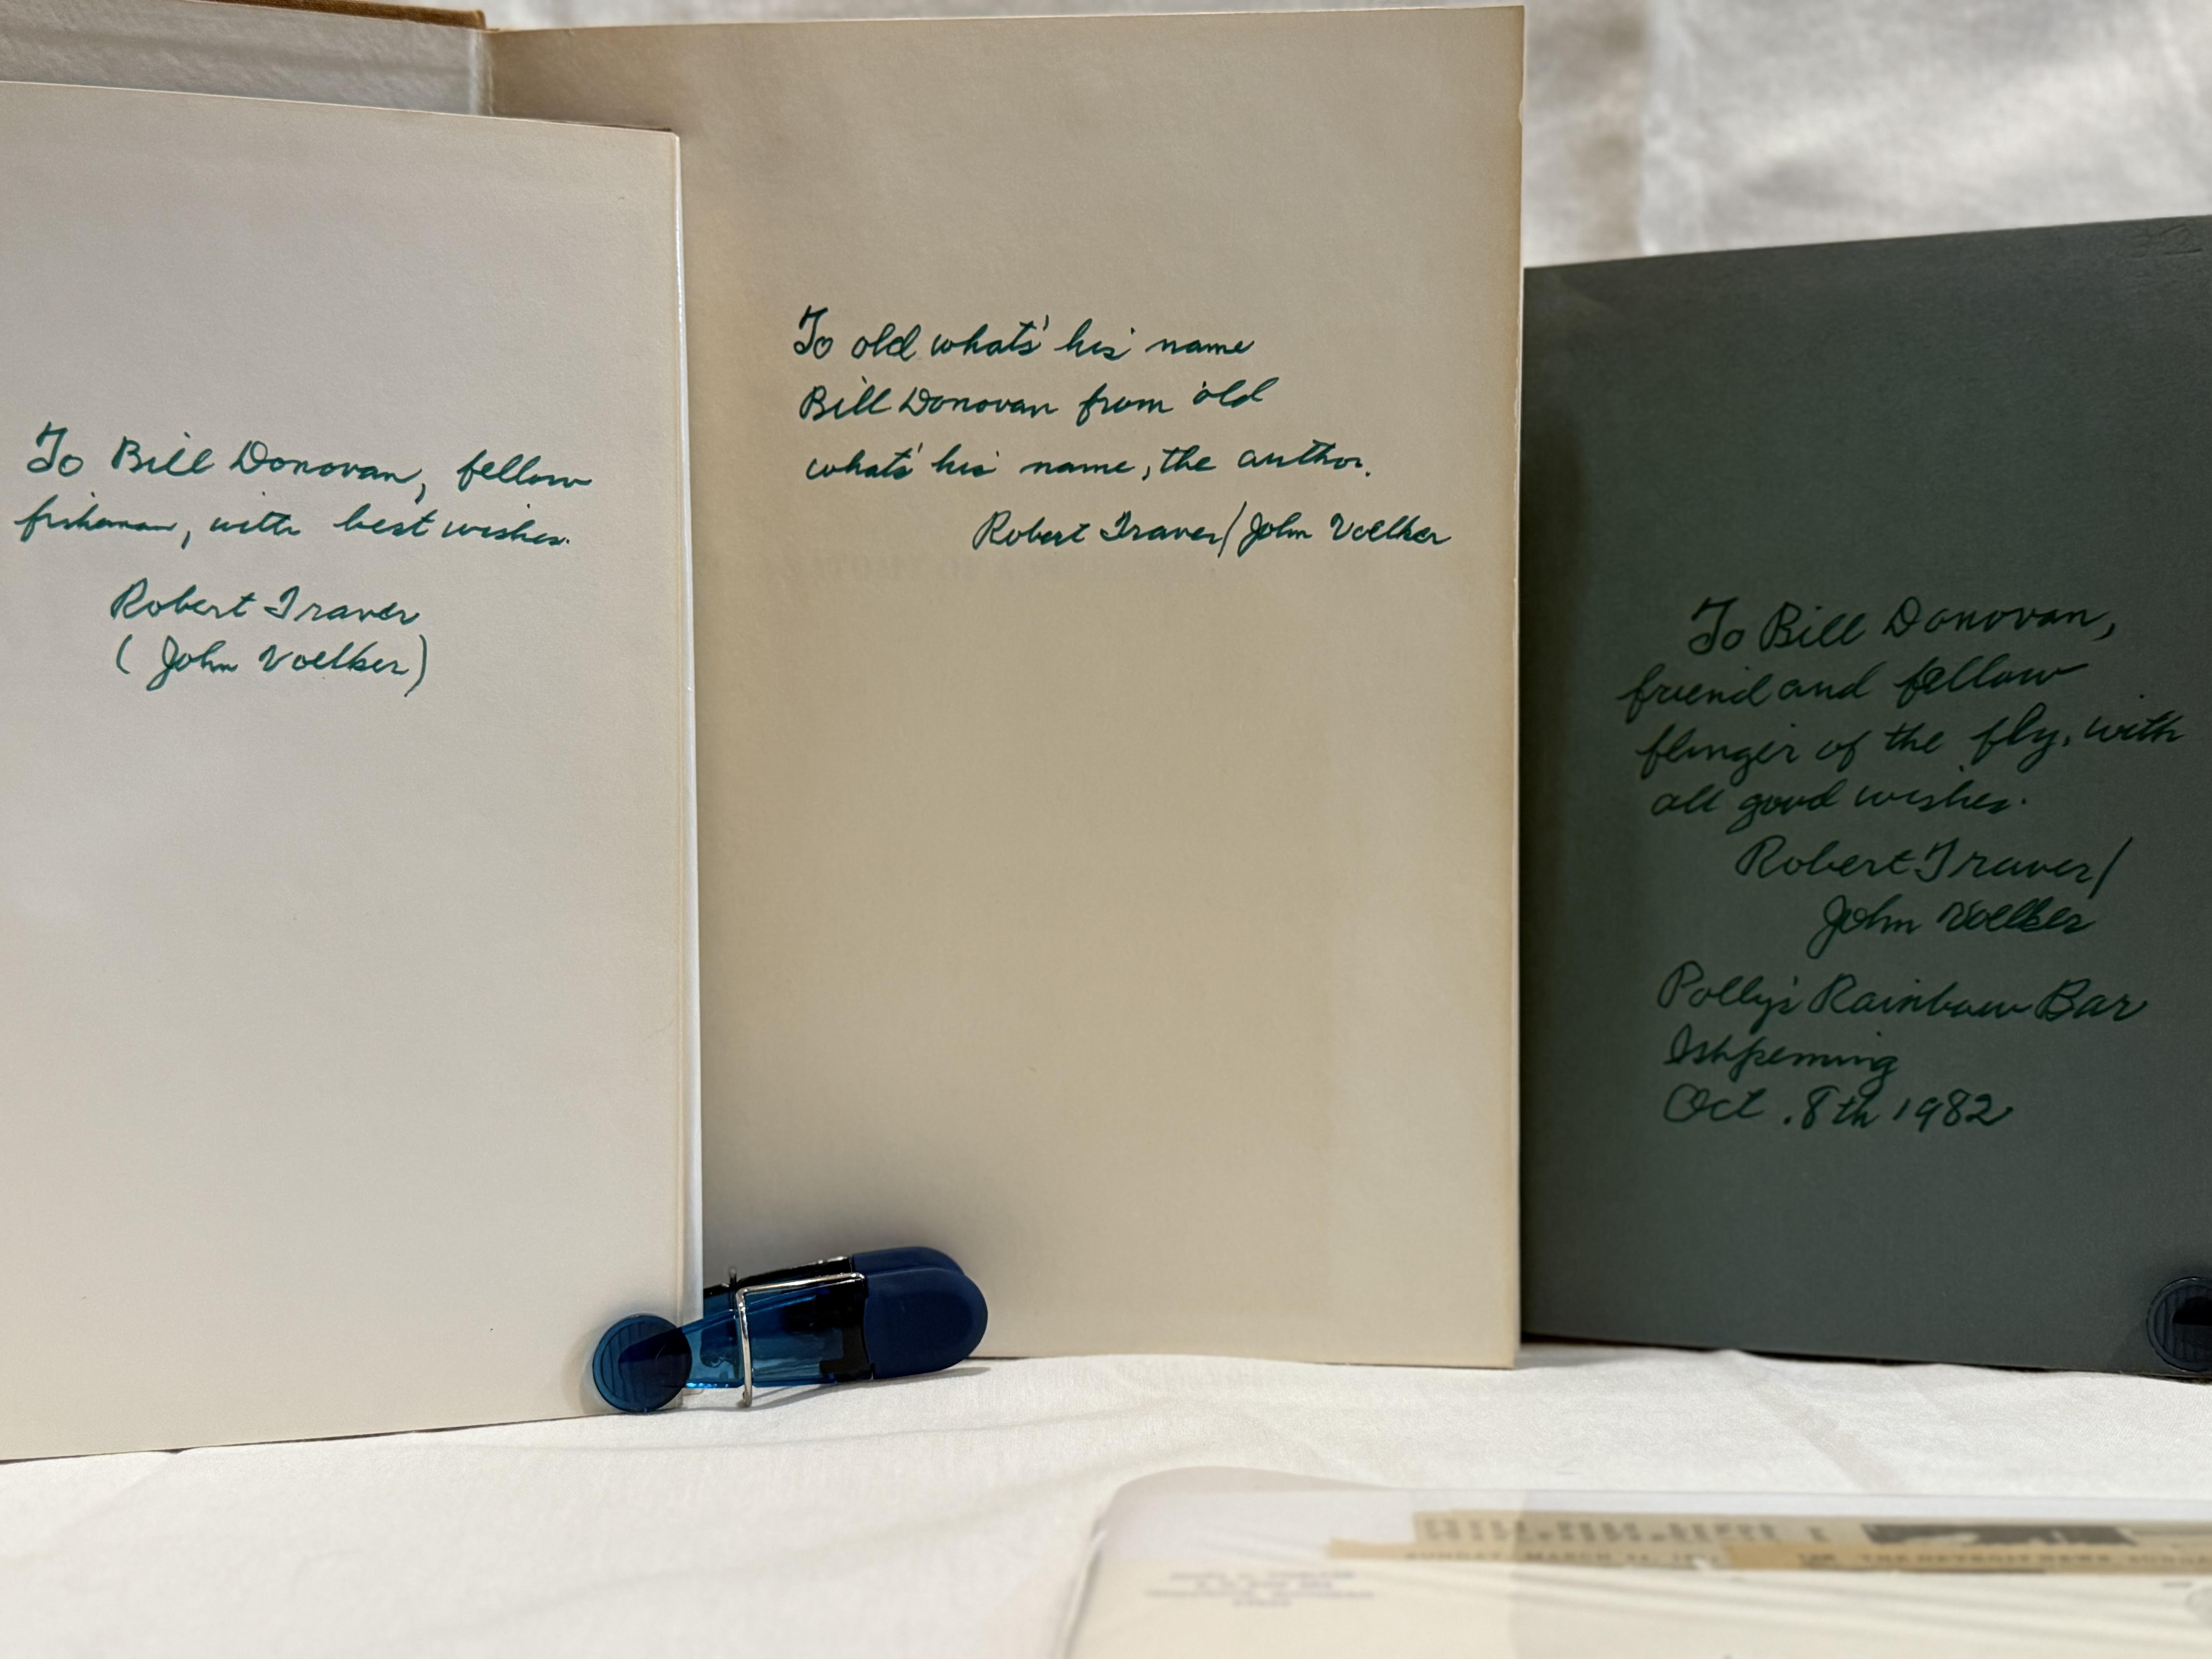 To Bill Donovan, fellow
fisherman, with best wishes.
Robert Traver
(John Voelker)
To old what's' his' name
Bill Donovan from old
what's' his' name, the author.
Robert Traver/John Voelker
To Bill Donovan,
friend and fellow
flinger of the fly, with
all good wishes.
Robert Traver/
John Voelker
Polly's Rainbow Bar
Ishpeming
Oct. 8th 1982
SUNDAY, MARCH
THE DETROIT NEWS